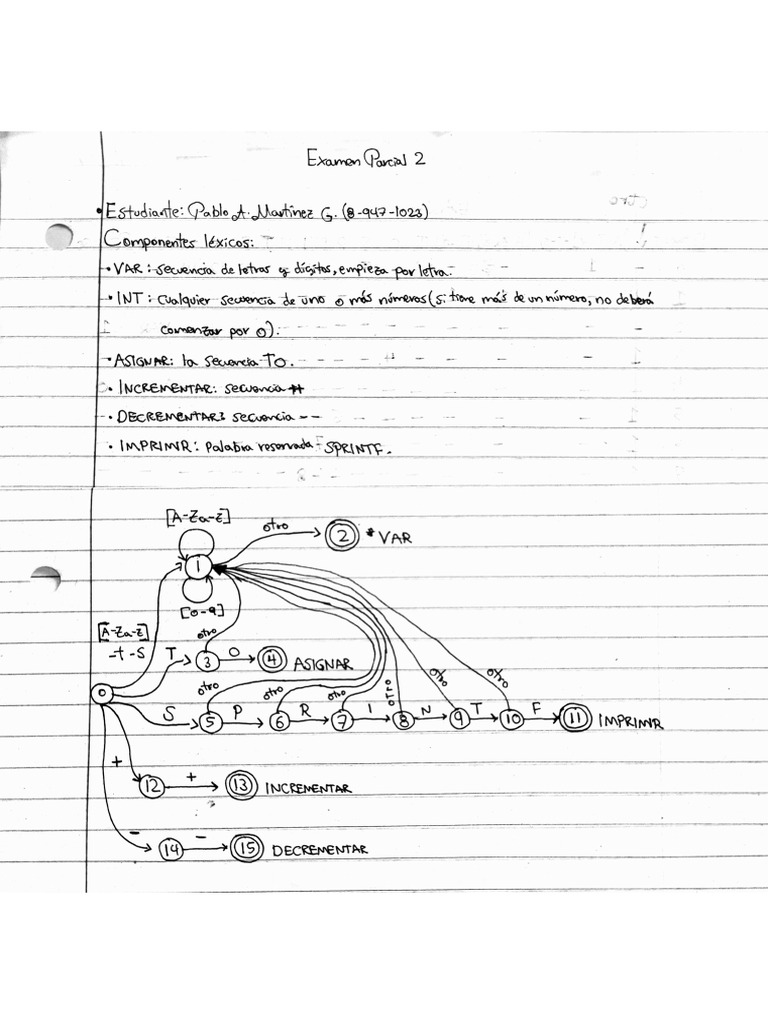 Examen Parcial 2
• Estudiante: Pablo A. Martínez G. (8-947-1023)
Componentes léxicos:
• VAR: secuencia de letras y dígitos, empieza por letra.
• INT: cualquier secuencia de uno o más números (si tiene más de un número, no deberá
comenzar por 0).
• ASIGNAR: la secuencia TO.
• INCREMENTAR: secuencia ++
• DECREMENTAR: secuencia --
• IMPRIMIR: Palabra reservada SPRINTF.
[A-Za-z]
otro
2 * VAR
1
[0-9]
[A-Za-z]
-t -S
otro
T 3 O 4 ASIGNAR
0
otro otro otro otro otro otro
S 5 P 6 R 7 I 8 N 9 T 10 F 11 IMPRIMIR
+ 12 + 13 INCREMENTAR
- 14 - 15 DECREMENTAR